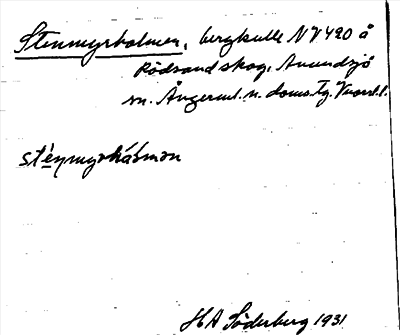 Stenmyrholmen, bergkulle NV 420 å
Rödsand skog, Anundsjö
sn. Ångerml. n. doms. Tg. Väasterl. l.
sténmyrhå̀lmɒn
HA Söderberg 1931